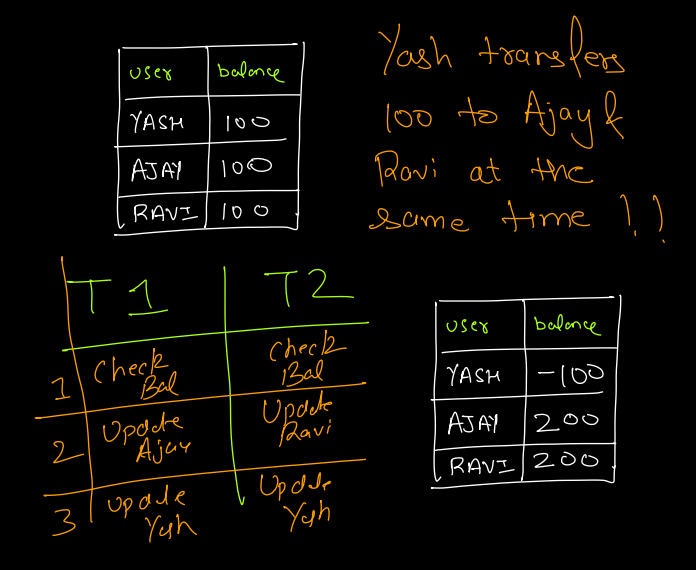 user balance
YASH 100
AJAY 100
RAVI 100
Yash transfers
100 to Ajay &
Ravi at the
same time !!
T1 T2
1 Check Bal Check Bal
2 Update Ajay Update Ravi
3 Update Yash Update Yash
user balance
YASH -100
AJAY 200
RAVI 200